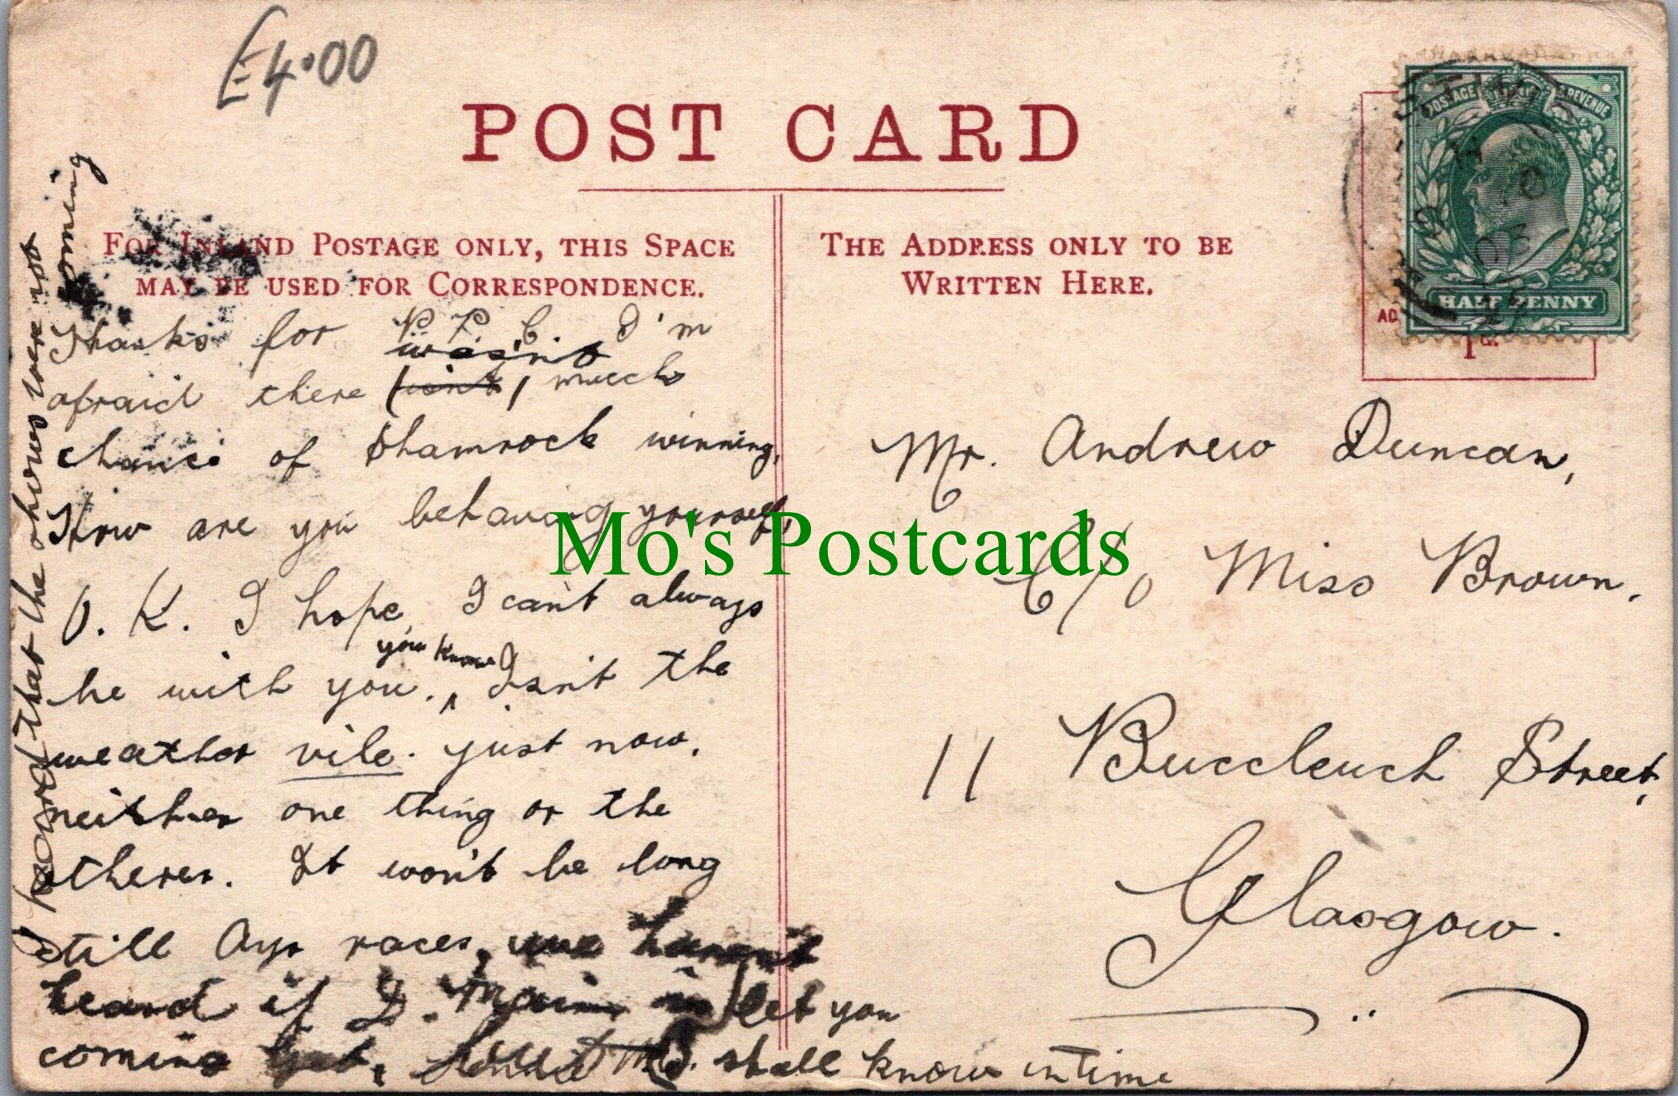 £4.00
POST CARD
FOR INLAND POSTAGE ONLY, THIS SPACE
MAY BE USED FOR CORRESPONDENCE.
THE ADDRESS ONLY TO BE
WRITTEN HERE.
POSTAGE REVENUE
HALF PENNY
Thanks for P. P. C. I'm
wasn't
afraid there (isn't) much
chance of Shamrock winning.
How are you behaving yourself,
O. K. I hope, I can't always
be with you. you know Isn't the
weather vile just now,
neither one thing or the
other. It won't be long
till Ayr races, we haven't
heard if D. is let you
coming yet, shall know in time
I heard that the shows were not
coming
Mr. Andrew Duncan,
C/o Miss Brown,
11 Buccleuch Street,
Glasgow.
Mo's Postcards